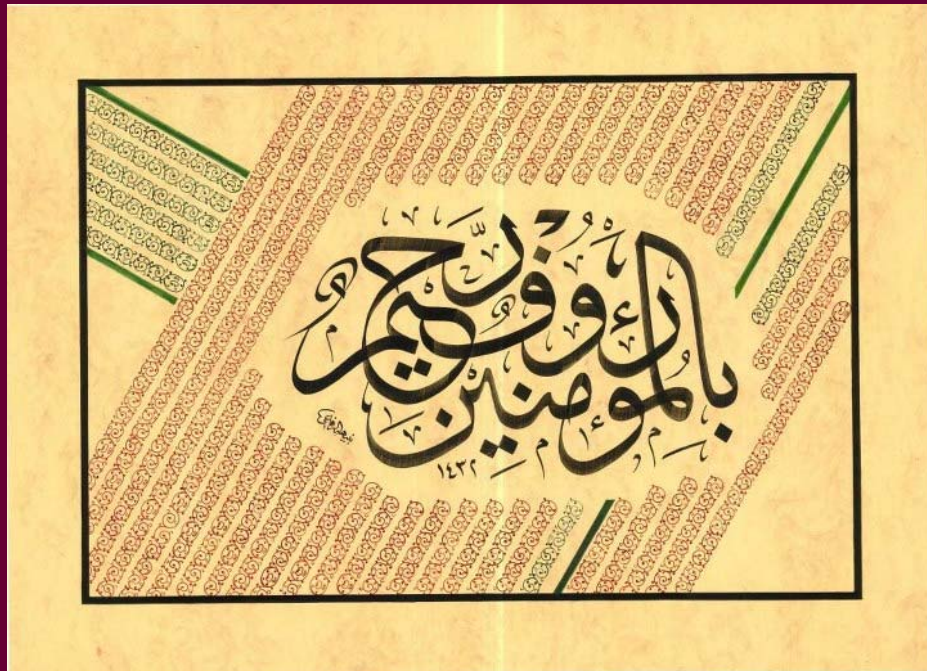 بِالْمُؤْمِنِينَ رَءُوفٌ رَّحِيمٌ
١٤٣٢